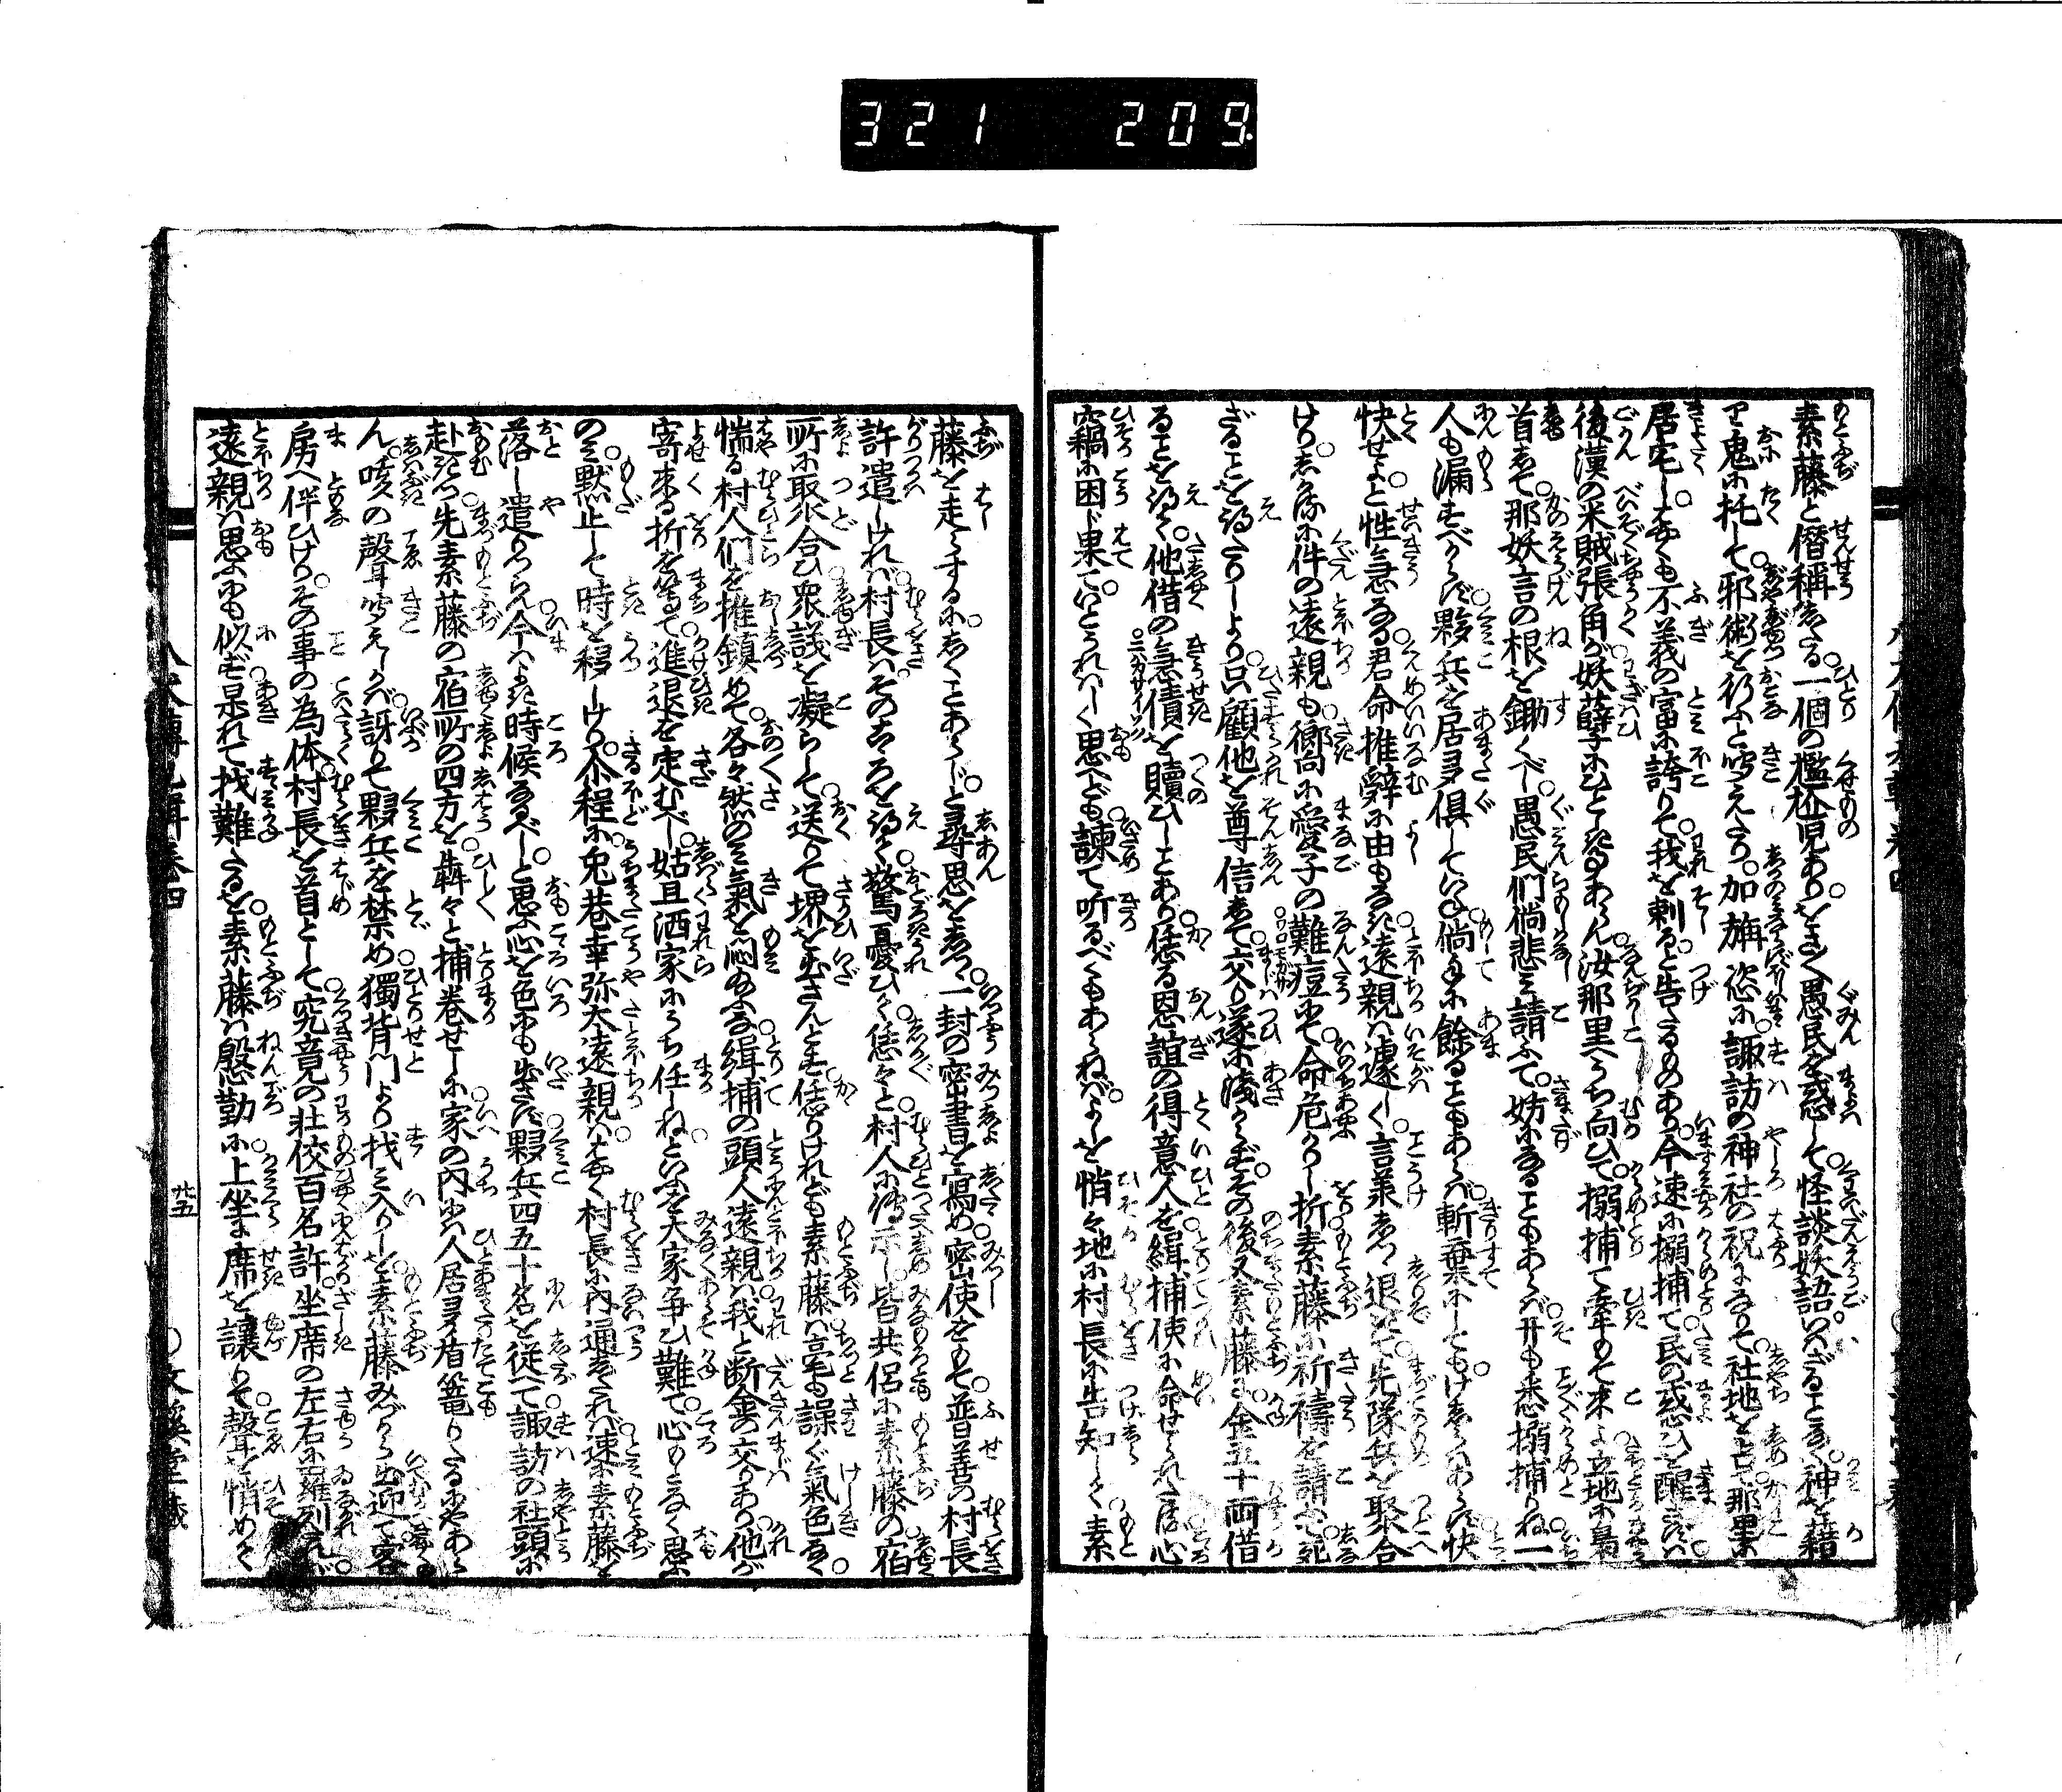 321 209.
素藤と僭稱したる一個の尷尬児あり をさ〳〵愚民を惑して怪談妖語いはざることなく神を藉
り鬼に托して邪術を行ふと聞えたり 加旃恣に諏訪の神社の祝になりて社地を占て那里に
居宅しつ しかも不義の富に誇りて我を刺ると告たるものあり 今速に搦捕て民の惑ひを醒さずは
後漢の米賊張角が妖孽にひとしきことあらん 汝那里へうち向ひて搦捕て牽もて来よ 立地に梟
首して那妖言の根を鋤くべし 愚民們倘悲み請ふて妨になることもあらば 开も悉搦捕りね 一
人も漏すべからず 夥兵を居多俱していね 倘手に餘ることもあらば斬棄にしてもけしうはあらず 快
快せよと性急なる君命推辞に由もなき 遠親は遽しく言承しつ退きて先隊兵を聚合
けり しかるに件の遠親も 嚮に愛子の難痘にて命危かりし折 素藤に祈禱を請ふて死
ざることを得たりしより 只顧他を尊信して交り遂に淺からず その後又素藤に金五十両借
ることを得て 他借の急債を贖ひしことあり 恁る恩誼の得意人を緝捕使に命せられて 心
窃に困じ果て いとうれはしく思へども 諫て听るべくもあらねば よしを悄々地に村長に告知して 素
藤を走らするに しくことあらじと尋思をしつ 一封の密書を寫め 密使をもて普善の村長
許遣しければ 村長はそのこゝろを得て 驚き憂ひて恁々と村人に傳示し 皆共侶に素藤の宿
所に聚合ひ 衆議を凝らして 送りて堺を出さんとす 恁りけれども素藤は毫も譟ぐ氣色なく
惴る村人們を推鎮めて 各々然のみ氣を悶給ふな 緝捕の頭人遠親は我と断金の交りあり 他が
寄来る折を等て進退を定むべし 姑且洒家にうち任しねといふを 大家争ひ難て 心もとなく思ふ
のみ 默止して時を移しけり 介程に兎巷幸弥太遠親は しかく村長に内通したれば 速に素藤を
落し遣りつらん 今はよき時候なるべしと思ふ心を色にも出さず 夥兵四五十名を従へて諏訪の社頭に
赴きつ 先素藤の宿所の四方を 犇々と捕巻せしに 家の内には人居多盾篭りたるにやあら
ん 咳の聲聞えしかば 訝りて夥兵を禁め 獨背門より找み入りしを 素藤みづから出迎て 客
房へ伴ひけり その事の為体 村長を首として究竟の壮佼百名許 坐席の左右に羅列たれば
遠親は思ふにも似ず 呆れて找難たるを 素藤は慇懃に上坐に席を讓りて聲を悄めて
八犬傳九輯巻四
廿五
文溪堂藏